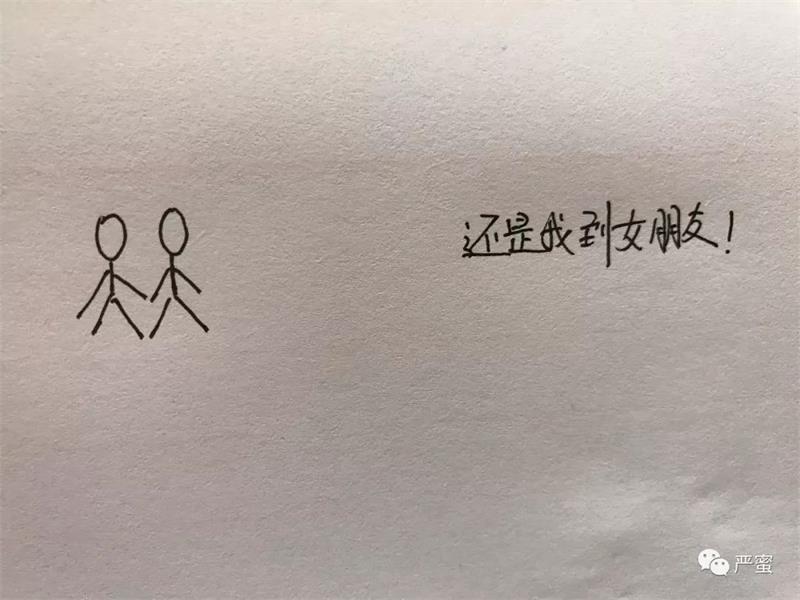 还是找到女朋友！
严蜜